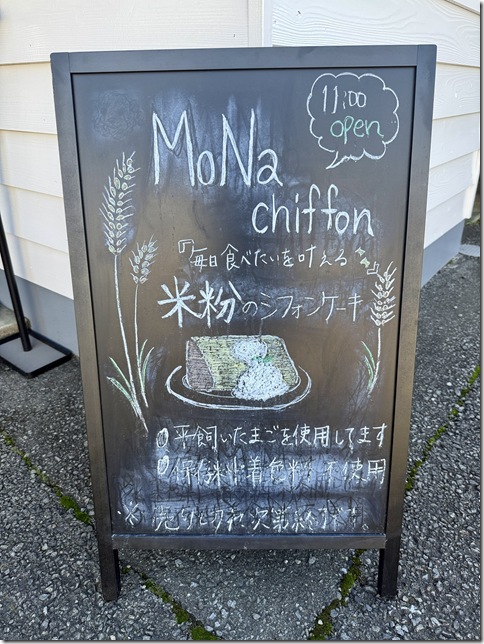 11:00
open
MoNa
chiffon
『毎日食べたいを叶える』
米粉のシフォンケーキ
平飼いたまごを使用してます
保存料 着色料 不使用
※売り切れ次第終了